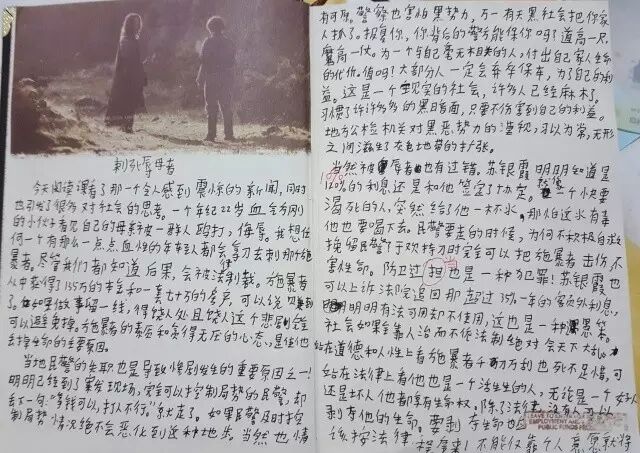 刺死辱母者
今天阅读课看了那个令人感到震惊的新闻，同时
也引发了很多对社会的思考。一个年纪22岁血气方刚
的小伙子看见自己的母亲被一群人殴打，侮辱。我想任
何一个有那么一点点血性的年轻人都会拿刀去刺那个施
暴者。尽管我们都知道后果，会被法律制裁。施暴者
从中获得了155万的本金和一套七十万的房产，可以说
了。如果做事留一线，得饶人处且饶人这个悲剧
可以避免掉。施暴者的素质和贪得无厌的心态，是信他
去掉生命的主要原因。
当地民警的失职也是导致惨剧发生的重要原因之一！
明明已经到了案发现场，完全可以控制局势的民警，却
丢下一句：“要钱可以，打人不行。”就走了。如果民警及时控
制局势 情况绝不会恶化到这种地步。当然也情
有可原。警察也害怕黑势力，万一有天黑社会把你家
人抓了。报复你，你背后的警方能保你吗？道高一尺
魔高一仗。为一个与自己毫无相关的人，付出自己家人生命
的代价。值吗？大部分人一定会弃车保车，为了自己的利
益。这是一个现实的社会，许多人已经麻木了。
习惯了许许多多的黑暗面，只要不伤害到自己的利益。
地方公检机关对黑恶势力的漠视，习以为常，无形
之间滋生了灰色地带的扩张。
当然被辱者也有过错。苏银霞明明知道是
120%的利息还是和他签定了协定。一个快要
渴死的人，突然给了他一杯水，那怕这水有毒
他也要喝下去。民警要走的时候，为何不积极自救
挽留民警于欢持刀时完全可以把施暴者击伤，不
害性命。防卫过担也是一种犯罪！苏银霞也
可以上诉法院追回那超过35%一年的高额利息，
明明有法可用却不使用，这也是一种愚笨。
社会如果全靠人治而不依法制绝对会天下大乱
站在道德和人性上看施暴者千刀万剐也死不足惜，可
站在法律上看他也是一个活生生的人，无论是一个
还是坏人他都享有生命权。除了法律，没有人可以
剥夺他的生命。要剥夺生命也
该按法律程序来！不能仅靠个人意愿就将
LEAVE TO ENTER
EMPLOYMENT AND
PUBLIC FUNDS